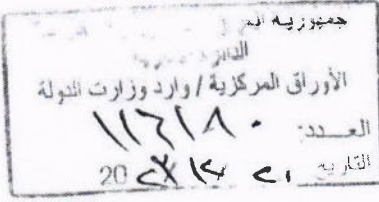 جمهورية
الدائرة
الأوراق المركزية / وارد وزارت الدولة
العـــدد: ١١٦١٨٠
التاريخ ٢١ ١٢ 20